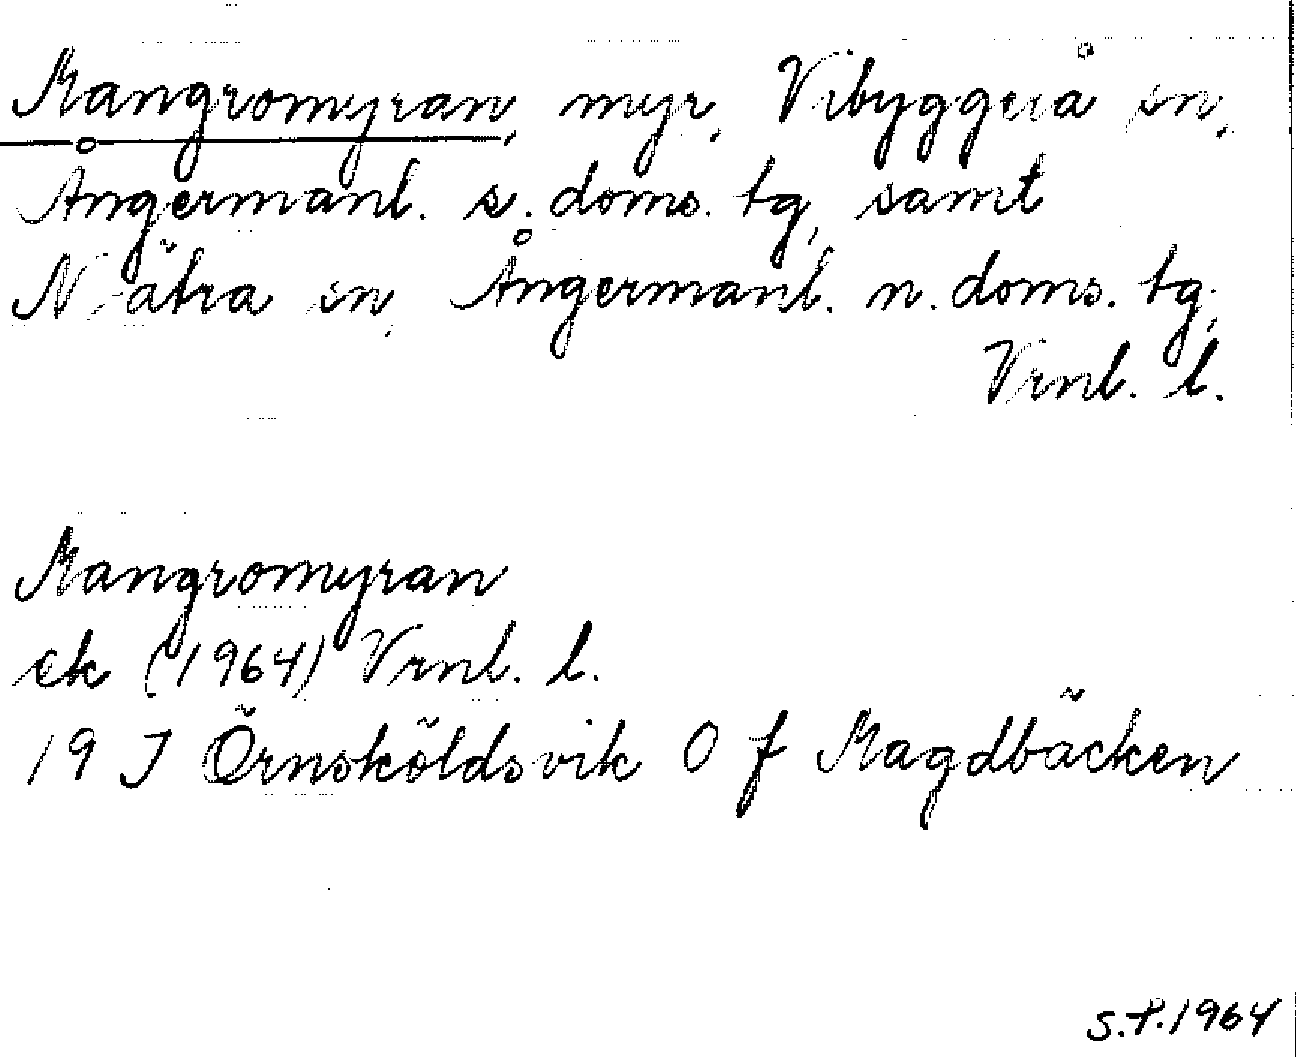 Mangromyran, myr, Vibyggerå sn,
Ångermanl. s. doms. tg, samt
Nätra sn, Ångermanl. n. doms. tg,
Vrnl. l.
Mangromyran
ek (1964) Vrnl. l.
19 J Örnsköldsvik O f Magdbäcken
S.P. 1964